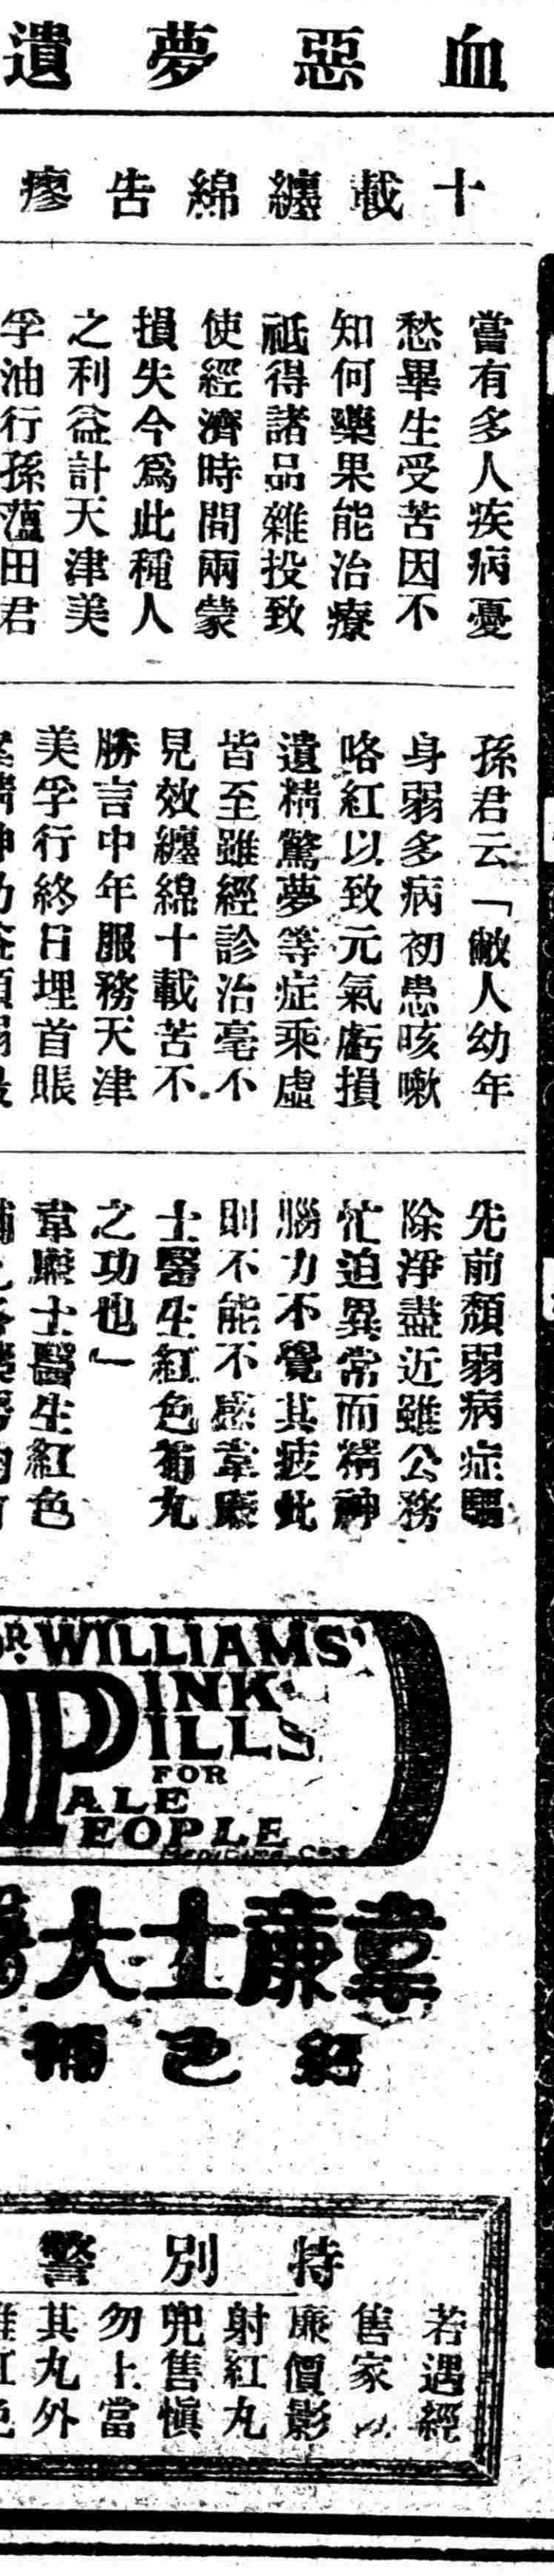 血惡夢遺
十載纏綿告瘳
嘗有多人疾病憂
愁畢生受苦因不
知何藥果能治療
祗得諸品雜投致
使經濟時間兩蒙
損失今爲此種人
之利益計天津美
孚油行孫蘊田君
孫君云「敝人幼年
身弱多病初患咳嗽
咯紅以致元氣虧損
遺精驚夢等症乘虛
皆至雖經診治毫不
見效纏綿十載苦不
勝言中年服務天津
美孚行終日埋首賬
先前頹弱病症
除淨盡近雖公務
忙迫異常而精神
腦力不覺其疲此
則不能不感韋廉
士醫生紅色補丸
之功也」
韋廉士醫生紅色
DR. WILLIAMS'
PINK
PILLS
FOR
PALE
PEOPLE
韋廉士大醫
紅色補
特別警
若遇經
售家以
廉價影
射紅丸
兜售愼
勿上當
其丸外